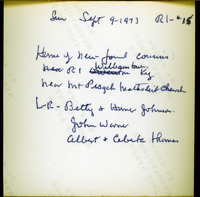 Sun Sept 9-1973 R1-#15
Home of new found cousins
near R1 Williamstown Ky
near Mt Pisgah Methodist Church
L-R - Betty & Homer Johnson
John Warner
Albert & Celeste Thomas